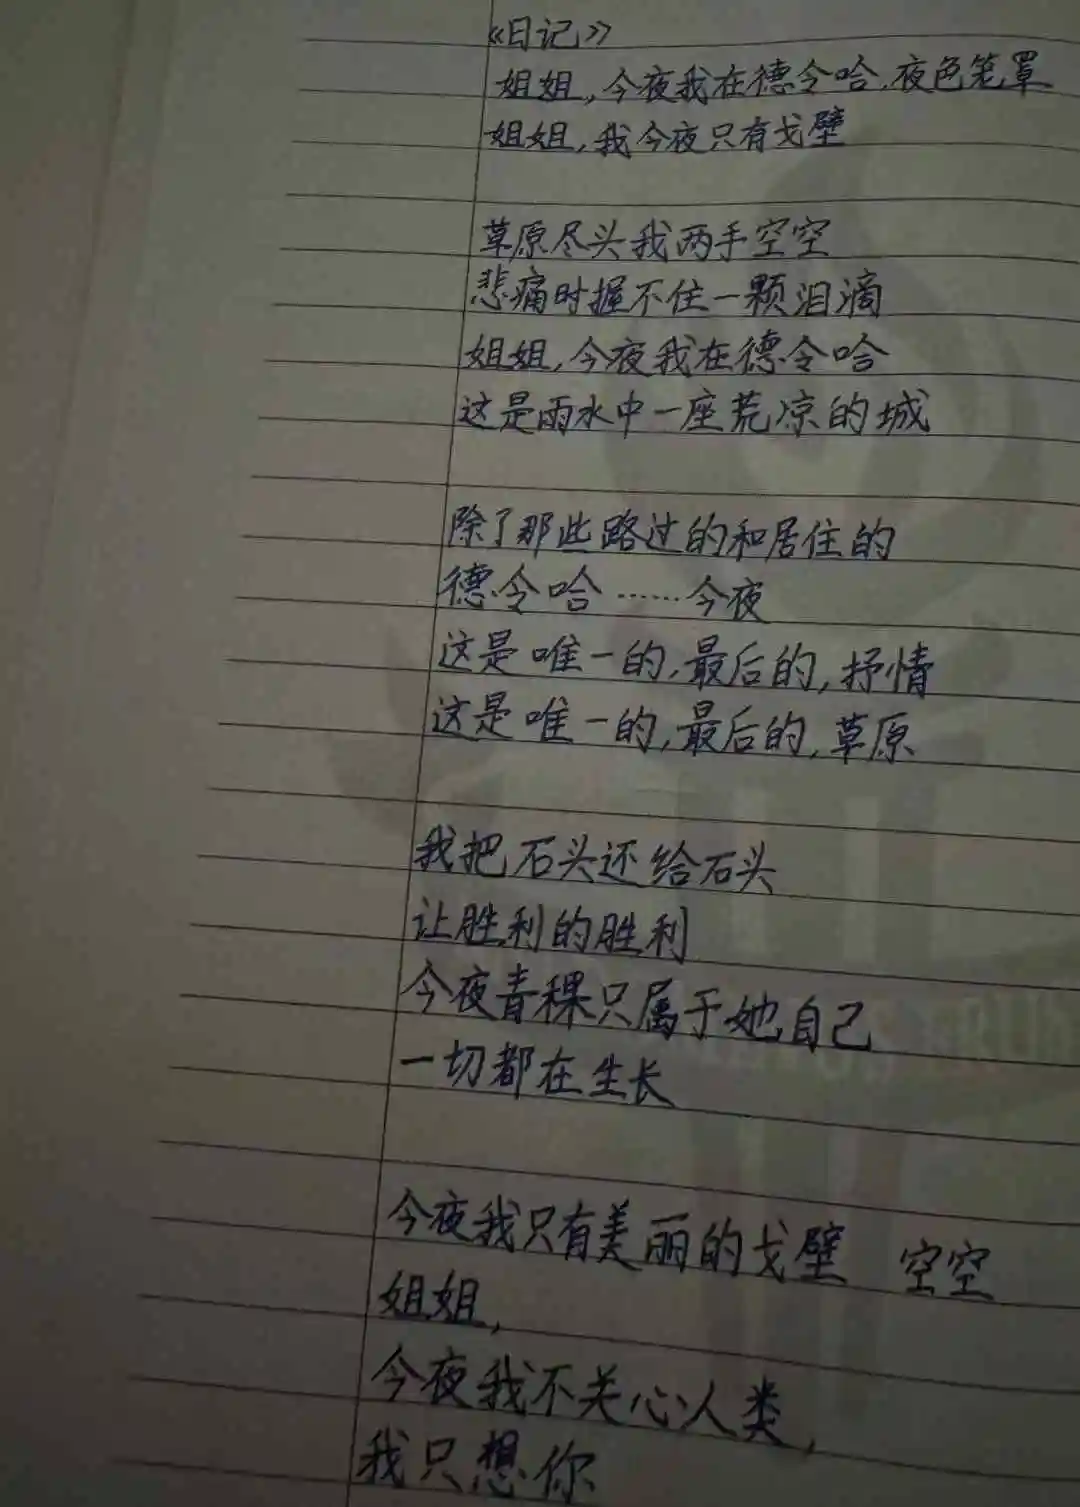 《日记》
姐姐,今夜我在德令哈,夜色笼罩
姐姐,我今夜只有戈壁
草原尽头我两手空空
悲痛时握不住一颗泪滴
姐姐,今夜我在德令哈
这是雨水中一座荒凉的城
除了那些路过的和居住的
德令哈……今夜
这是唯一的,最后的,抒情
这是唯一的,最后的,草原
我把石头还给石头
让胜利的胜利
今夜青稞只属于她自己
一切都在生长
今夜我只有美丽的戈壁 空空
姐姐,
今夜我不关心人类,
我只想你